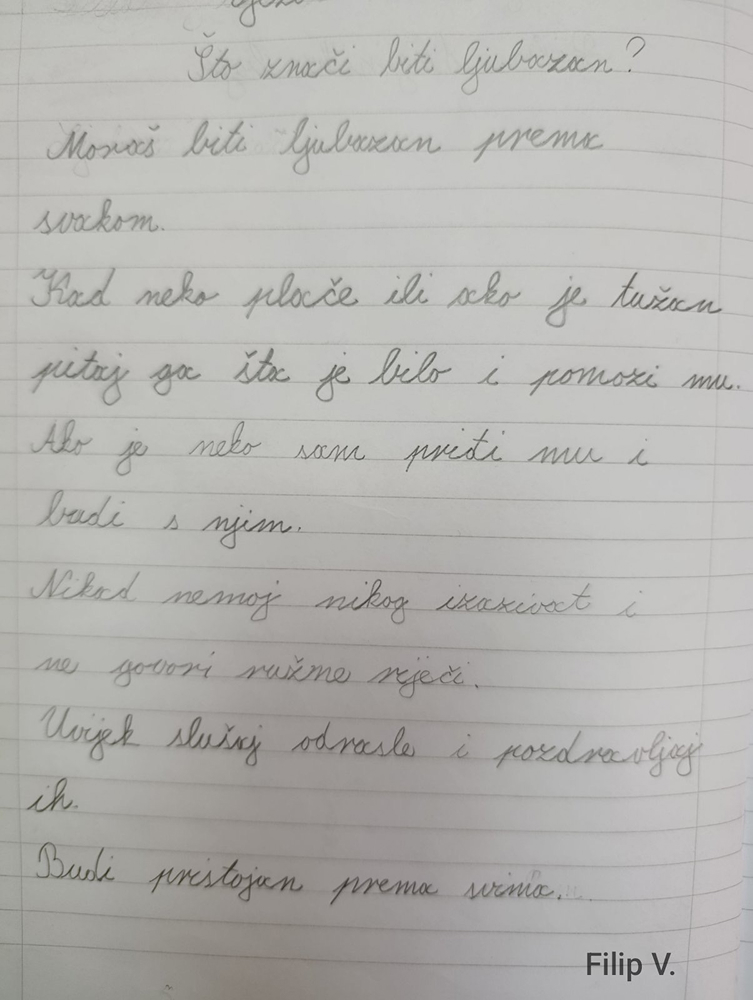 Što znači biti ljubazan?
Moraš biti ljubazan prema
svakom.
Kad neko plače ili ako je tužan
pitaj ga šta je bilo i pomozi mu.
Ako je neko sam priđi mu i
budi s njim.
Nikad nemoj nikog izazivat i
ne govori ružme rječi.
Uvijek slušaj odrasle i pozdravljaj
ih.
Budi pristojan prema svima.
Filip V.